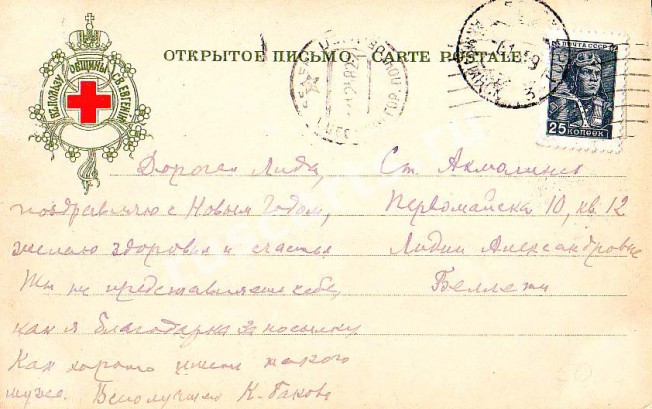 ВЪ ПОЛЬЗУ ОБЩИНЫ СВ. ЕВГЕНІИ
ОТКРЫТОЕ ПИСЬМО. CARTE POSTALE.
ПОЧТА СССР
25 КОПЕЕК
Дорогая Лида,
поздравляю с Новым Годом,
желаю здоровья и счастья
Ты не представляешь себе,
как я благодарна за посылку
Как хорошо иметь такого
мужа.
Ст. Акмолинск
Первомайска 10, кв. 12
Лидии Александровне